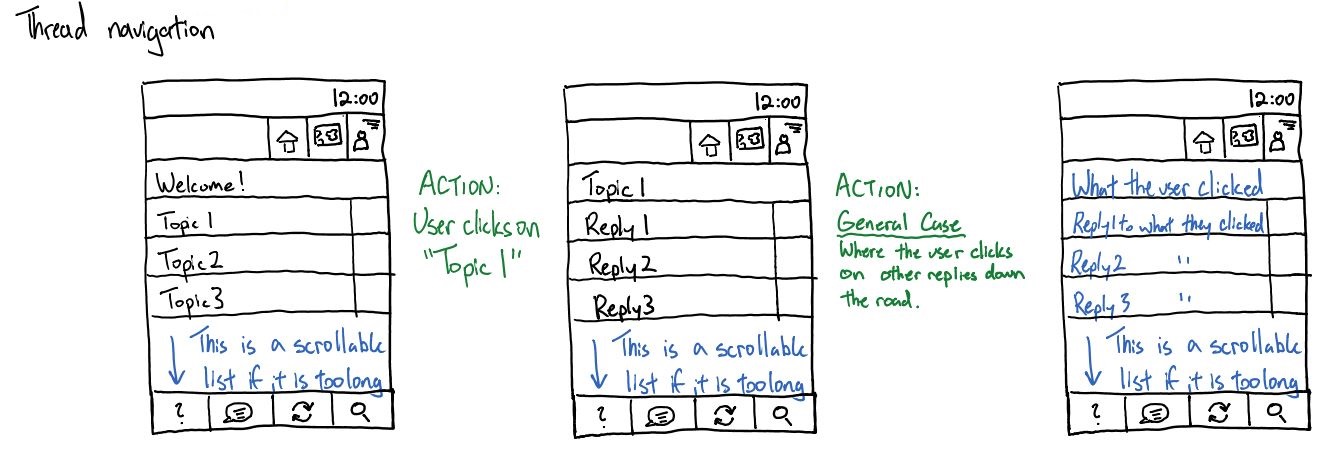 Thread navigation
12:00
Welcome!
Topic 1
Topic 2
Topic 3
This is a scrollable
list if it is too long
?
ACTION:
User clicks on
"Topic 1"
12:00
Topic 1
Reply 1
Reply 2
Reply 3
This is a scrollable
list if it is too long
?
ACTION:
General Case
Where the user clicks
on other replies down
the road.
12:00
What the user clicked
Reply 1 to what they clicked
Reply 2 "
Reply 3 "
This is a scrollable
list if it is too long
?